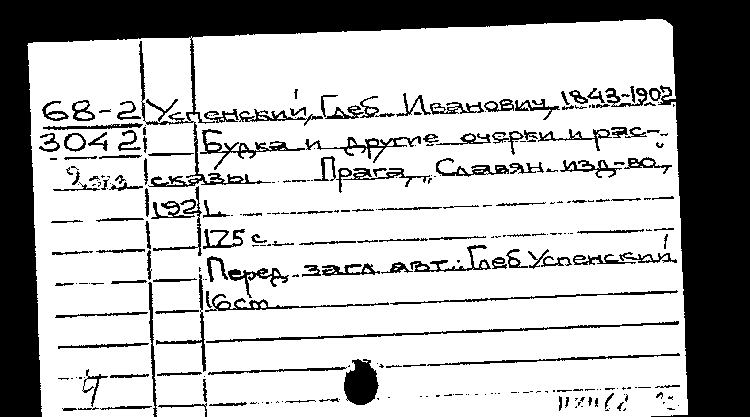 68-2 Успенский, Глеб Иванович, 1843-1902
3042 Будка и другие очерки и рас-
2 экз сказы. Прага, „Славян. изд-во,
1921.
175 с.
Перед загл. авт.: Глеб Успенский
16 cm.
4